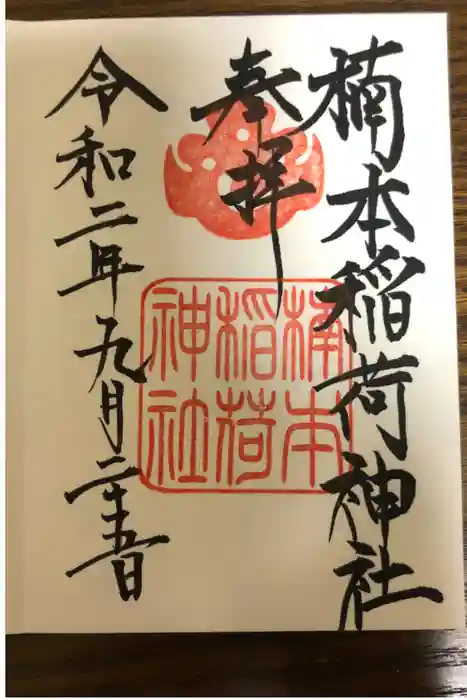 楠本稲荷神社
奉拝
令和二年九月二十五日
楠本
稲荷
神社